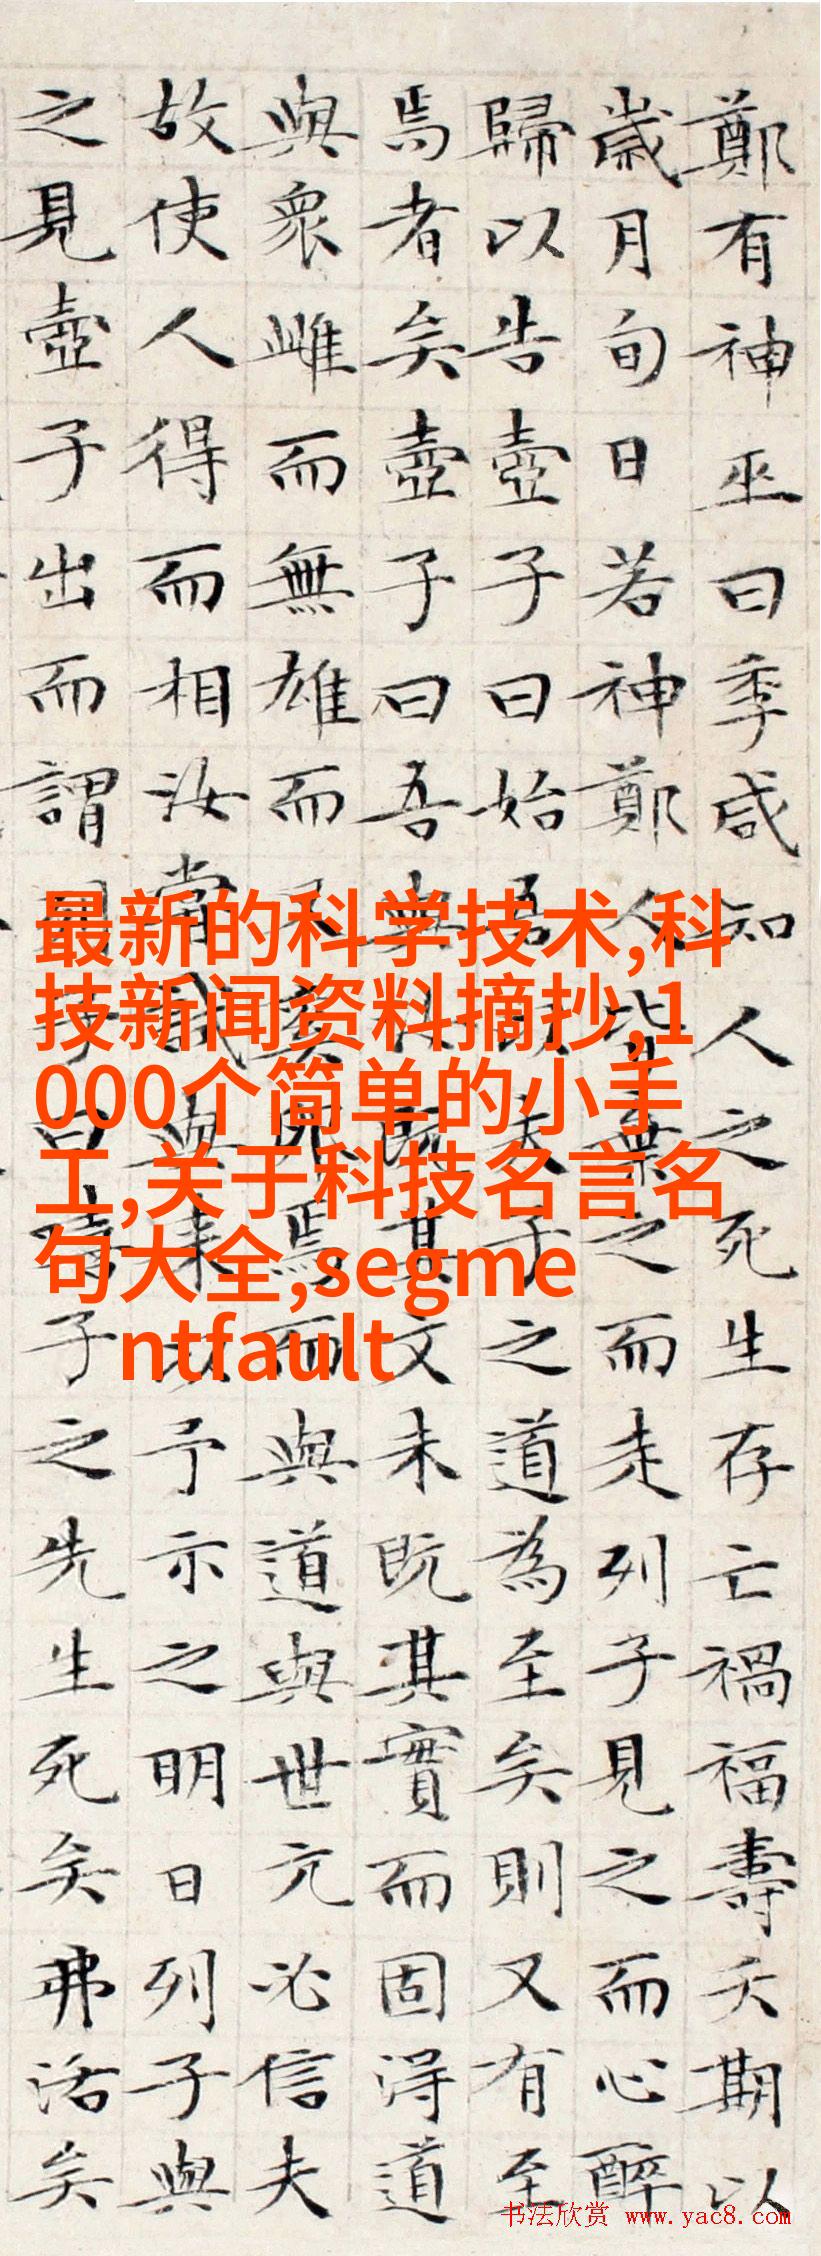 鄭有神巫曰季咸知人之死生存亡禍福壽夭期以
歲月旬日若神鄭人皆棄之而走列子見之而心醉
歸以告壺子曰始吾以夫子之道為至矣則又有至
焉者矣壺子曰吾與汝既其文未既其實而固得道
與眾雌而無雄而又奚卵焉而與道與世亢必信夫
故使人得而相汝嘗試與來以予示之明日列子與
之見壺子出而謂列子曰嘻子之先生死矣弗活矣
最新的科学技术,科
技新闻资料摘抄,1
000个简单的小手
工,关于科技名言名
句大全,segme
ntfault
书法欣赏 www.yac8.com